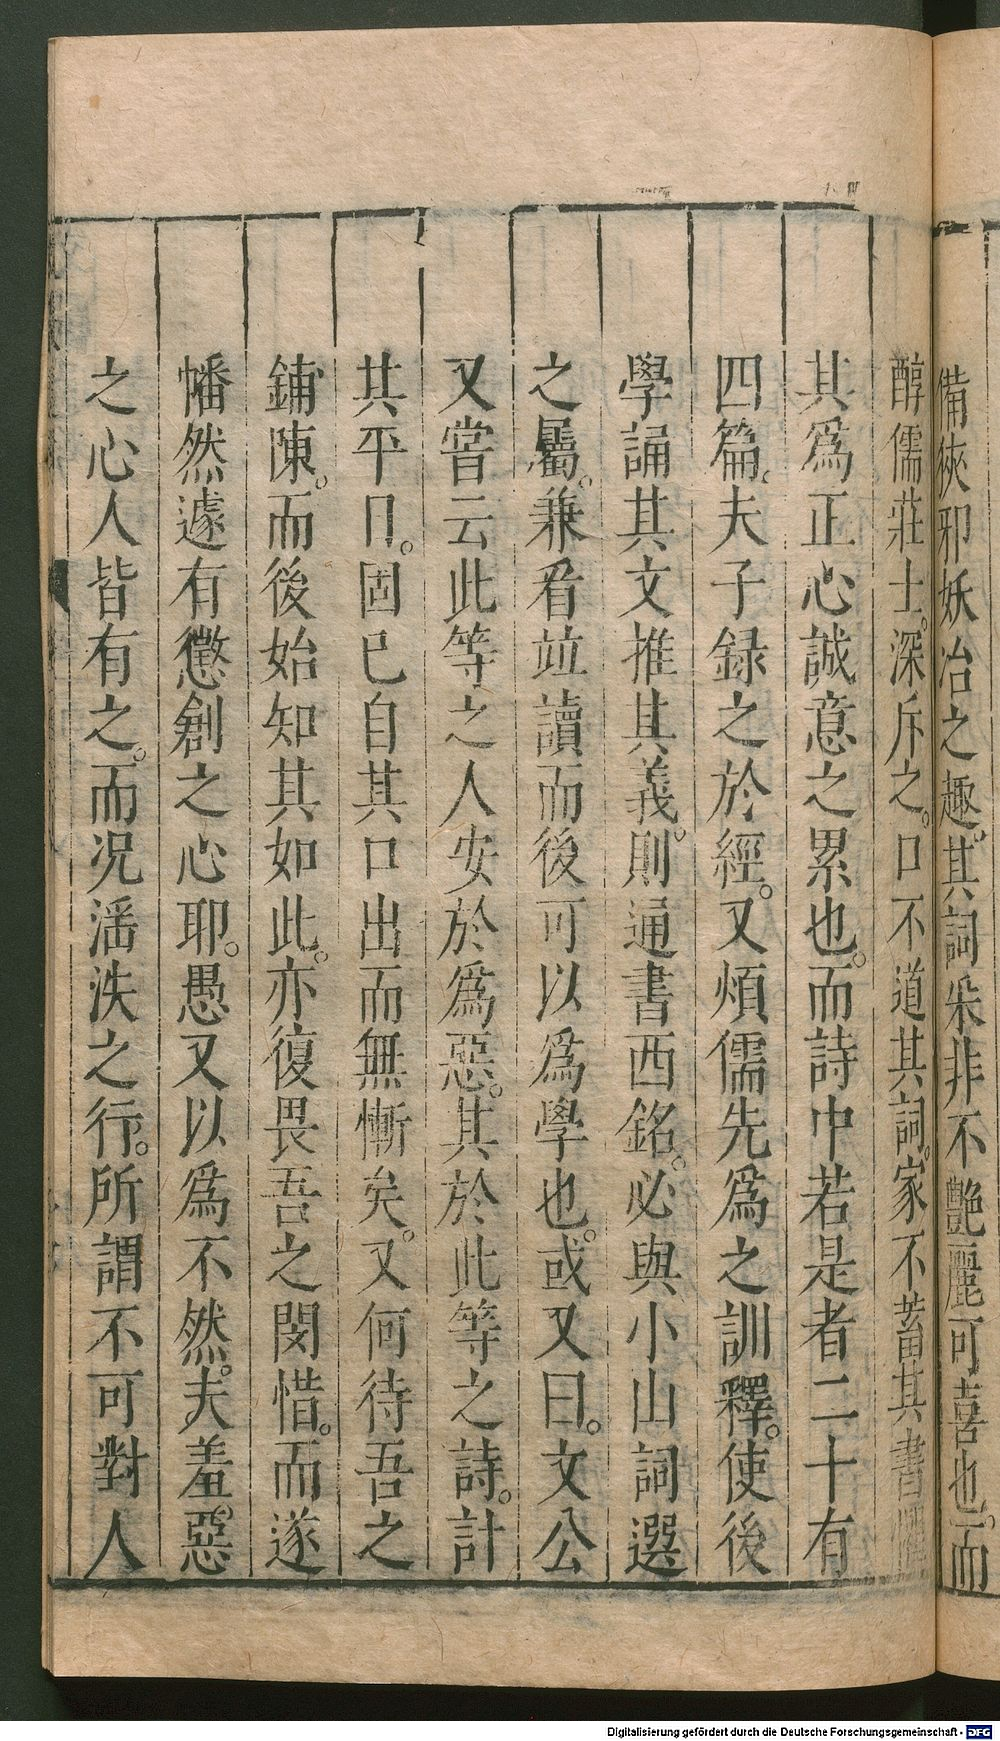 備狹邪妖冶之趣。其詞采非不艷麗可喜也。而
醇儒莊士。深斥之。口不道其詞。家不蓄其書懼
其爲正心誠意之累也。而詩中若是者二十有
四篇。夫子録之於經。又煩儒先爲之訓釋。使後
學誦其文推其義。則通書西銘。必與小山詞選
之屬。兼看竝讀而後可以爲學也。或又曰。文公
又嘗云此等之人安於爲惡。其於此等之詩。計
其平日。固已自其口出而無慚矣。又何待吾之
鋪陳。而後始知其如此。亦復畏吾之閔惜。而遂
幡然遽有懲創之心耶。愚又以爲不然。夫羞惡
之心人皆有之。而况滛泆之行。所謂不可對人
Digitalisierung gefördert durch die Deutsche Forschungsgemeinschaft - DFG